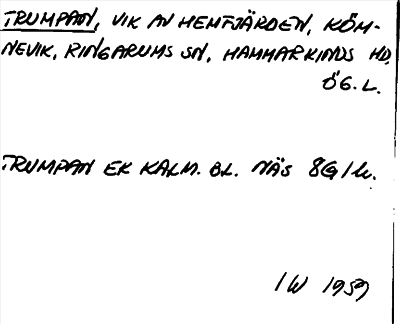 TRUMPAN, VIK AV HEMFJÄRDEN, KÖM-
NEVIK, RINGARUMS SN, HAMMARKINDS HD,
ÖG. L.
TRUMPAN EK KALM. BL. NÄS 8G1h.
IW 1959